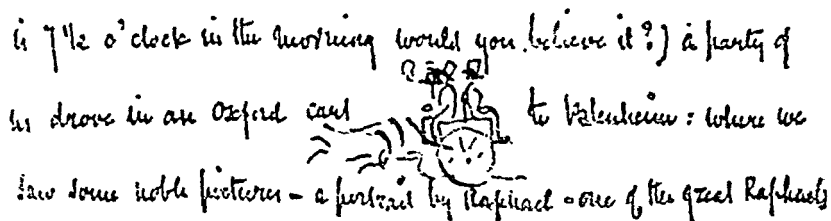 is 7 1/2 o'clock in the morning would you believe it?) a party of
us drove in an Oxford cart to Blenheim : where we
saw some noble pictures - a portrait by Raphael - one of the great Raphaels